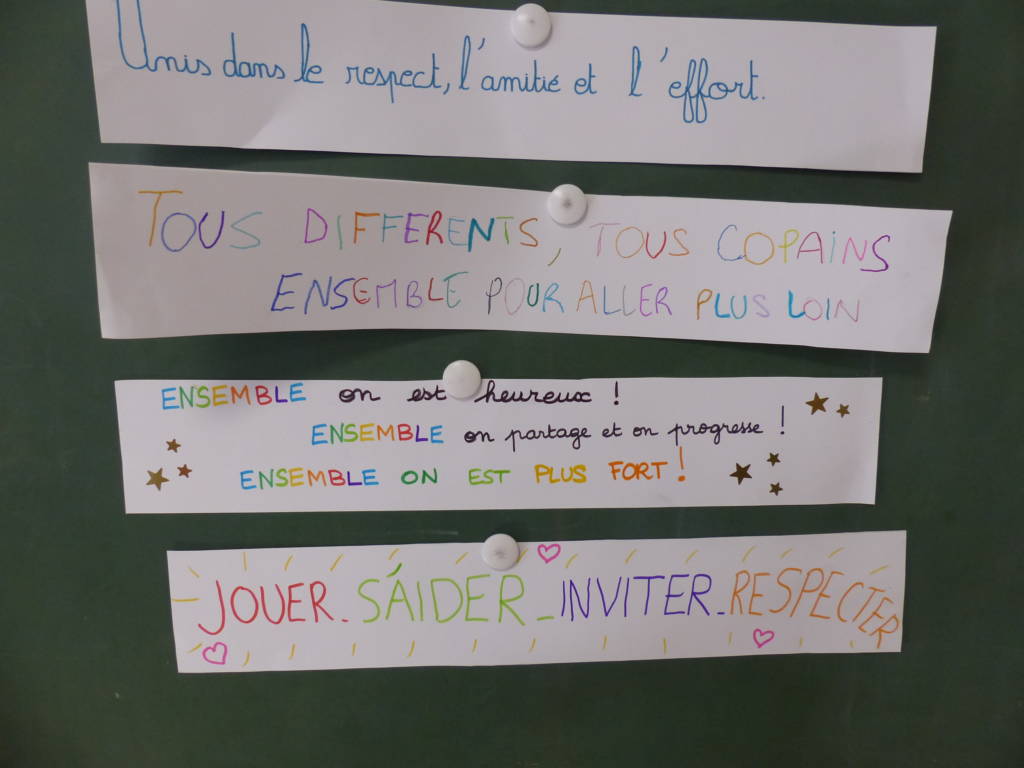 Unis dans le respect, l'amitié et l'effort.
TOUS DIFFERENTS, TOUS COPAINS
ENSEMBLE POUR ALLER PLUS LOIN
ENSEMBLE on est heureux !
ENSEMBLE on partage et on progresse !
ENSEMBLE ON EST PLUS FORT !
JOUER_S'AIDER_INVITER_RESPECTER